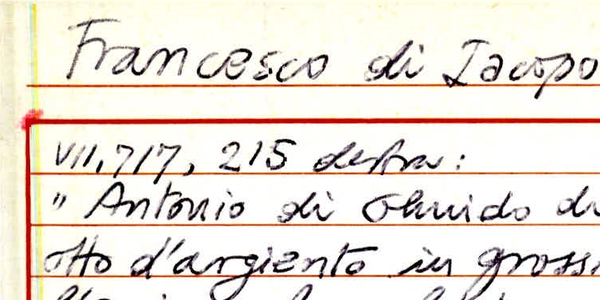 Francesco di Iacopo
VII, 717, 215 destra:
" Antonio di Ghuido di
otto d'argiento in grossi